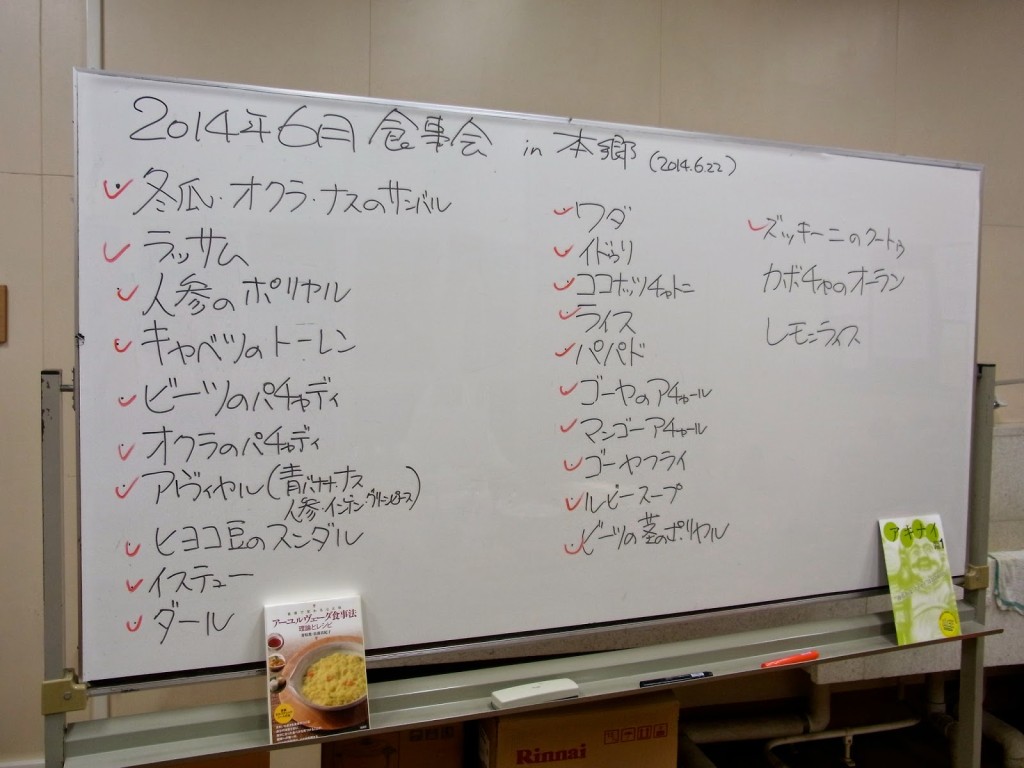 2014年6月 食事会 in 本郷 (2014.6.22)
冬瓜・オクラ・ナスのサンバル
ラッサム
人参のポリヤル
キャベツのトーレン
ビーツのパチャディ
オクラのパチャディ
アヴィヤル(青バナナ・ナス
人参・インゲン・グリーンピース)
ヒヨコ豆のスンダル
イステュー
ダール
ワダ
イドゥリ
ココナッツチャトニ
ライス
パパド
ゴーヤのアチャール
マンゴーアチャール
ゴーヤフライ
ルビースープ
ビーツの茎のポリヤル
ズッキーニのクートゥ
カボチャのオーラン
レモンライス
アーユルヴェーダ食事法
理論とレシピ
アキナイ
Rinnai